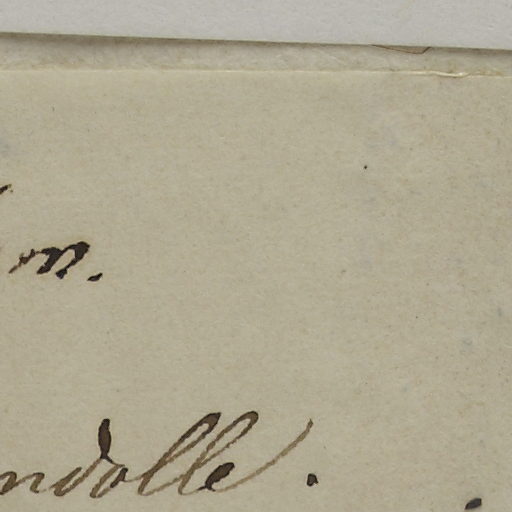 m.
ndolle.